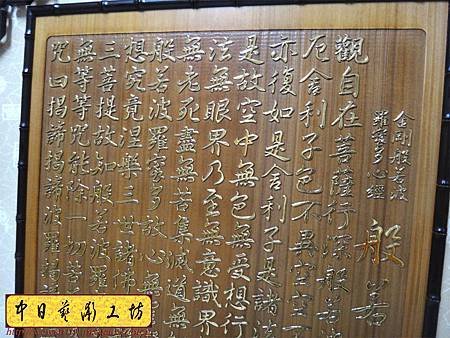 般若
金剛般若波
羅蜜多心經
觀自在菩薩行深般若波
厄舍利子色不異空空不
亦復如是舍利子是諸法
是故空中無色無受想行
法無眼界乃至無意識界
無老死盡無苦集滅道無
般若波羅蜜多故心無
想究竟涅槃三世諸佛
三菩提故知般若波羅
無等等咒能除一切苦
咒曰揭諦揭諦波羅揭
中日藝雕工坊